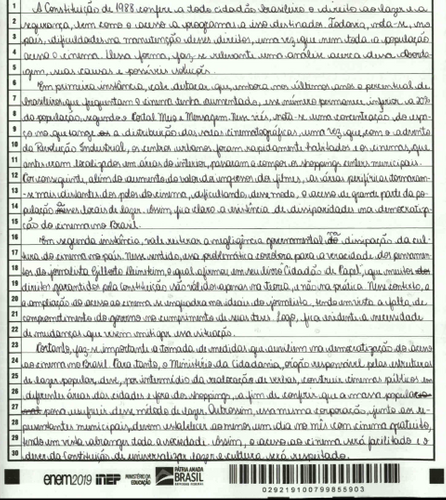 A Constituição de 1988 confere a todo cidadão brasileiro o direito ao lazer e a
segurança, bem como o acesso a programas a isso destinados. Todavia, nota-se, no
país, dificuldades na manutenção desse direito, uma vez que nem toda a população
acesso o cinema. Dessa forma, faz-se relevante uma análise acerca dessa aborda-
gem, suas causas e possíveis soluções.
Em primeira instância, vale destacar que, embora nos últimos anos o percentual de
brasileiros que frequentam o cinema tenha aumentado, esse número permanece inferior a 20%
da população, segundo o Portal Meio e Mensagem. Nesse viés, nota-se uma concentração do espa-
ço no que tange a distribuição das salas cinematográficas, uma vez que, com o advento
da Revolução Industrial, os centros urbanos foram rapidamente habitados e os cinemas, que
antes eram localizados em áreas do interior, passaram a compor os shoppings centers municipais.
Por conseguinte, além do aumento do valor do ingresso de filmes, as áreas periféricas tornaram-
se mais distantes dos polos do cinema, dificultando, desse modo, o acesso de grande parte da po-
pulação locais de lazer. Assim, fica claro a existência de disparidade na democratiza-
ção do cinema no Brasil.
Em segunda instância, vale reiterar a negligência governamental na dissipação da cul-
tura do cinema no país. Nesse sentido, essa problemática corrobora para a veracidade dos pensamen-
tos do jornalista Gilberto Dimenstein, o qual afirma em seu livro Cidadão de Papel, que muitos
direitos garantidos pela Constituição são válidos apenas na teoria, e não na prática. Nesse contexto, a
ampliação do acesso ao cinema se enquadra nos ideais do jornalista, tendo em vista a falta de
comprometimento do governo no cumprimento de suas Logo, fica evidente a necessidade
de mudanças que visem mitigar essa situação.
Portanto, faz-se importante a tomada de medidas que auxiliem na democratização do acesso
ao cinema no Brasil. Para tanto, o Ministério da Cidadania, órgão responsável pelas estruturas
de lazer popular, deve, por intermédio da realocação de verbas, construir cinemas públicos em
diferentes áreas das cidades e fora do shopping, a fim de conferir que a massa popular
possa usufruir desse método de lazer. Outrossim, essa mesma corporação, junto ao re-
presentantes municipais, devem estabelecer ao menos um dia no mês com cinema gratuito,
tendo em vista abranger toda a sociedade. Assim, o acesso ao cinema será facilitado e o
dever da Constituição de universalizar lazer e cultura será respeitado.
enem2019 inep MINISTÉRIO DA EDUCAÇÃO PÁTRIA AMADA BRASIL
029219100799855903